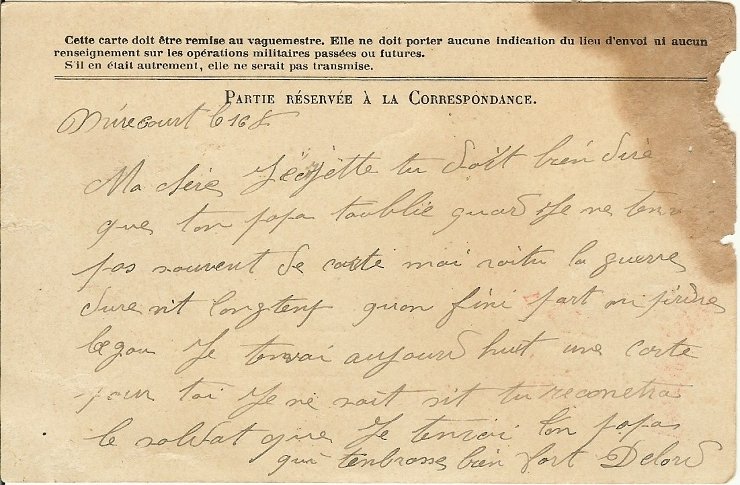 Cette carte doit être remise au vaguemestre. Elle ne doit porter aucune indication du lieu d'envoi ni aucun
renseignement sur les opérations militaires passées ou futures.
S'il en était autrement, elle ne serait pas transmise.
PARTIE RÉSERVÉE À LA CORRESPONDANCE.
Mirecourt le 16
Ma chère tu doit bien dire
que ton papa toublie quand Je ne tenvoi
pas souvent de carte mai voitu la guerre
dure sit longtemp quon fini part
le gou Je tenvoi aujourd huit une carte
pour toi Je ne sait sit tu reconetra
le soldat que Je tenvoi ton papa
qui tenbrasse bien fort Delord